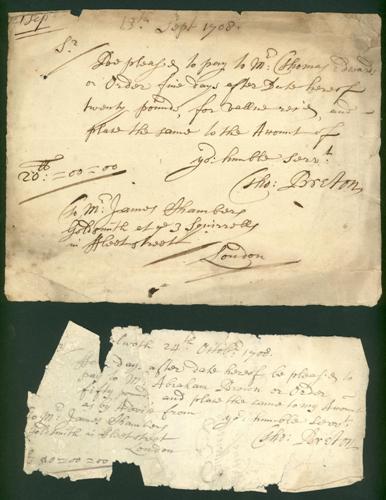 13th Sept 1708.
Sr
Bee pleased to pay to Mr. Thomas Edwards
or Order five days after Date hereof
twenty pounds, for vallue recd, and
place the same to the Amount of
yor: humble servt:
Tho: Breton
20lb:=00=00
To Mr. James Chambers
Goldsmith at ye 3 Squirrells
in Fleetstreet
London
24th Octobr. 1708.
days after date hereof be pleased to
pay to Mr Abraham Brown or Order
fifty and place the same to my Amount
as by Advice from yor: humble servt:
Tho: Breton
To Mr. James Chambers
Goldsmith in Fleetstreet
London
=00=00